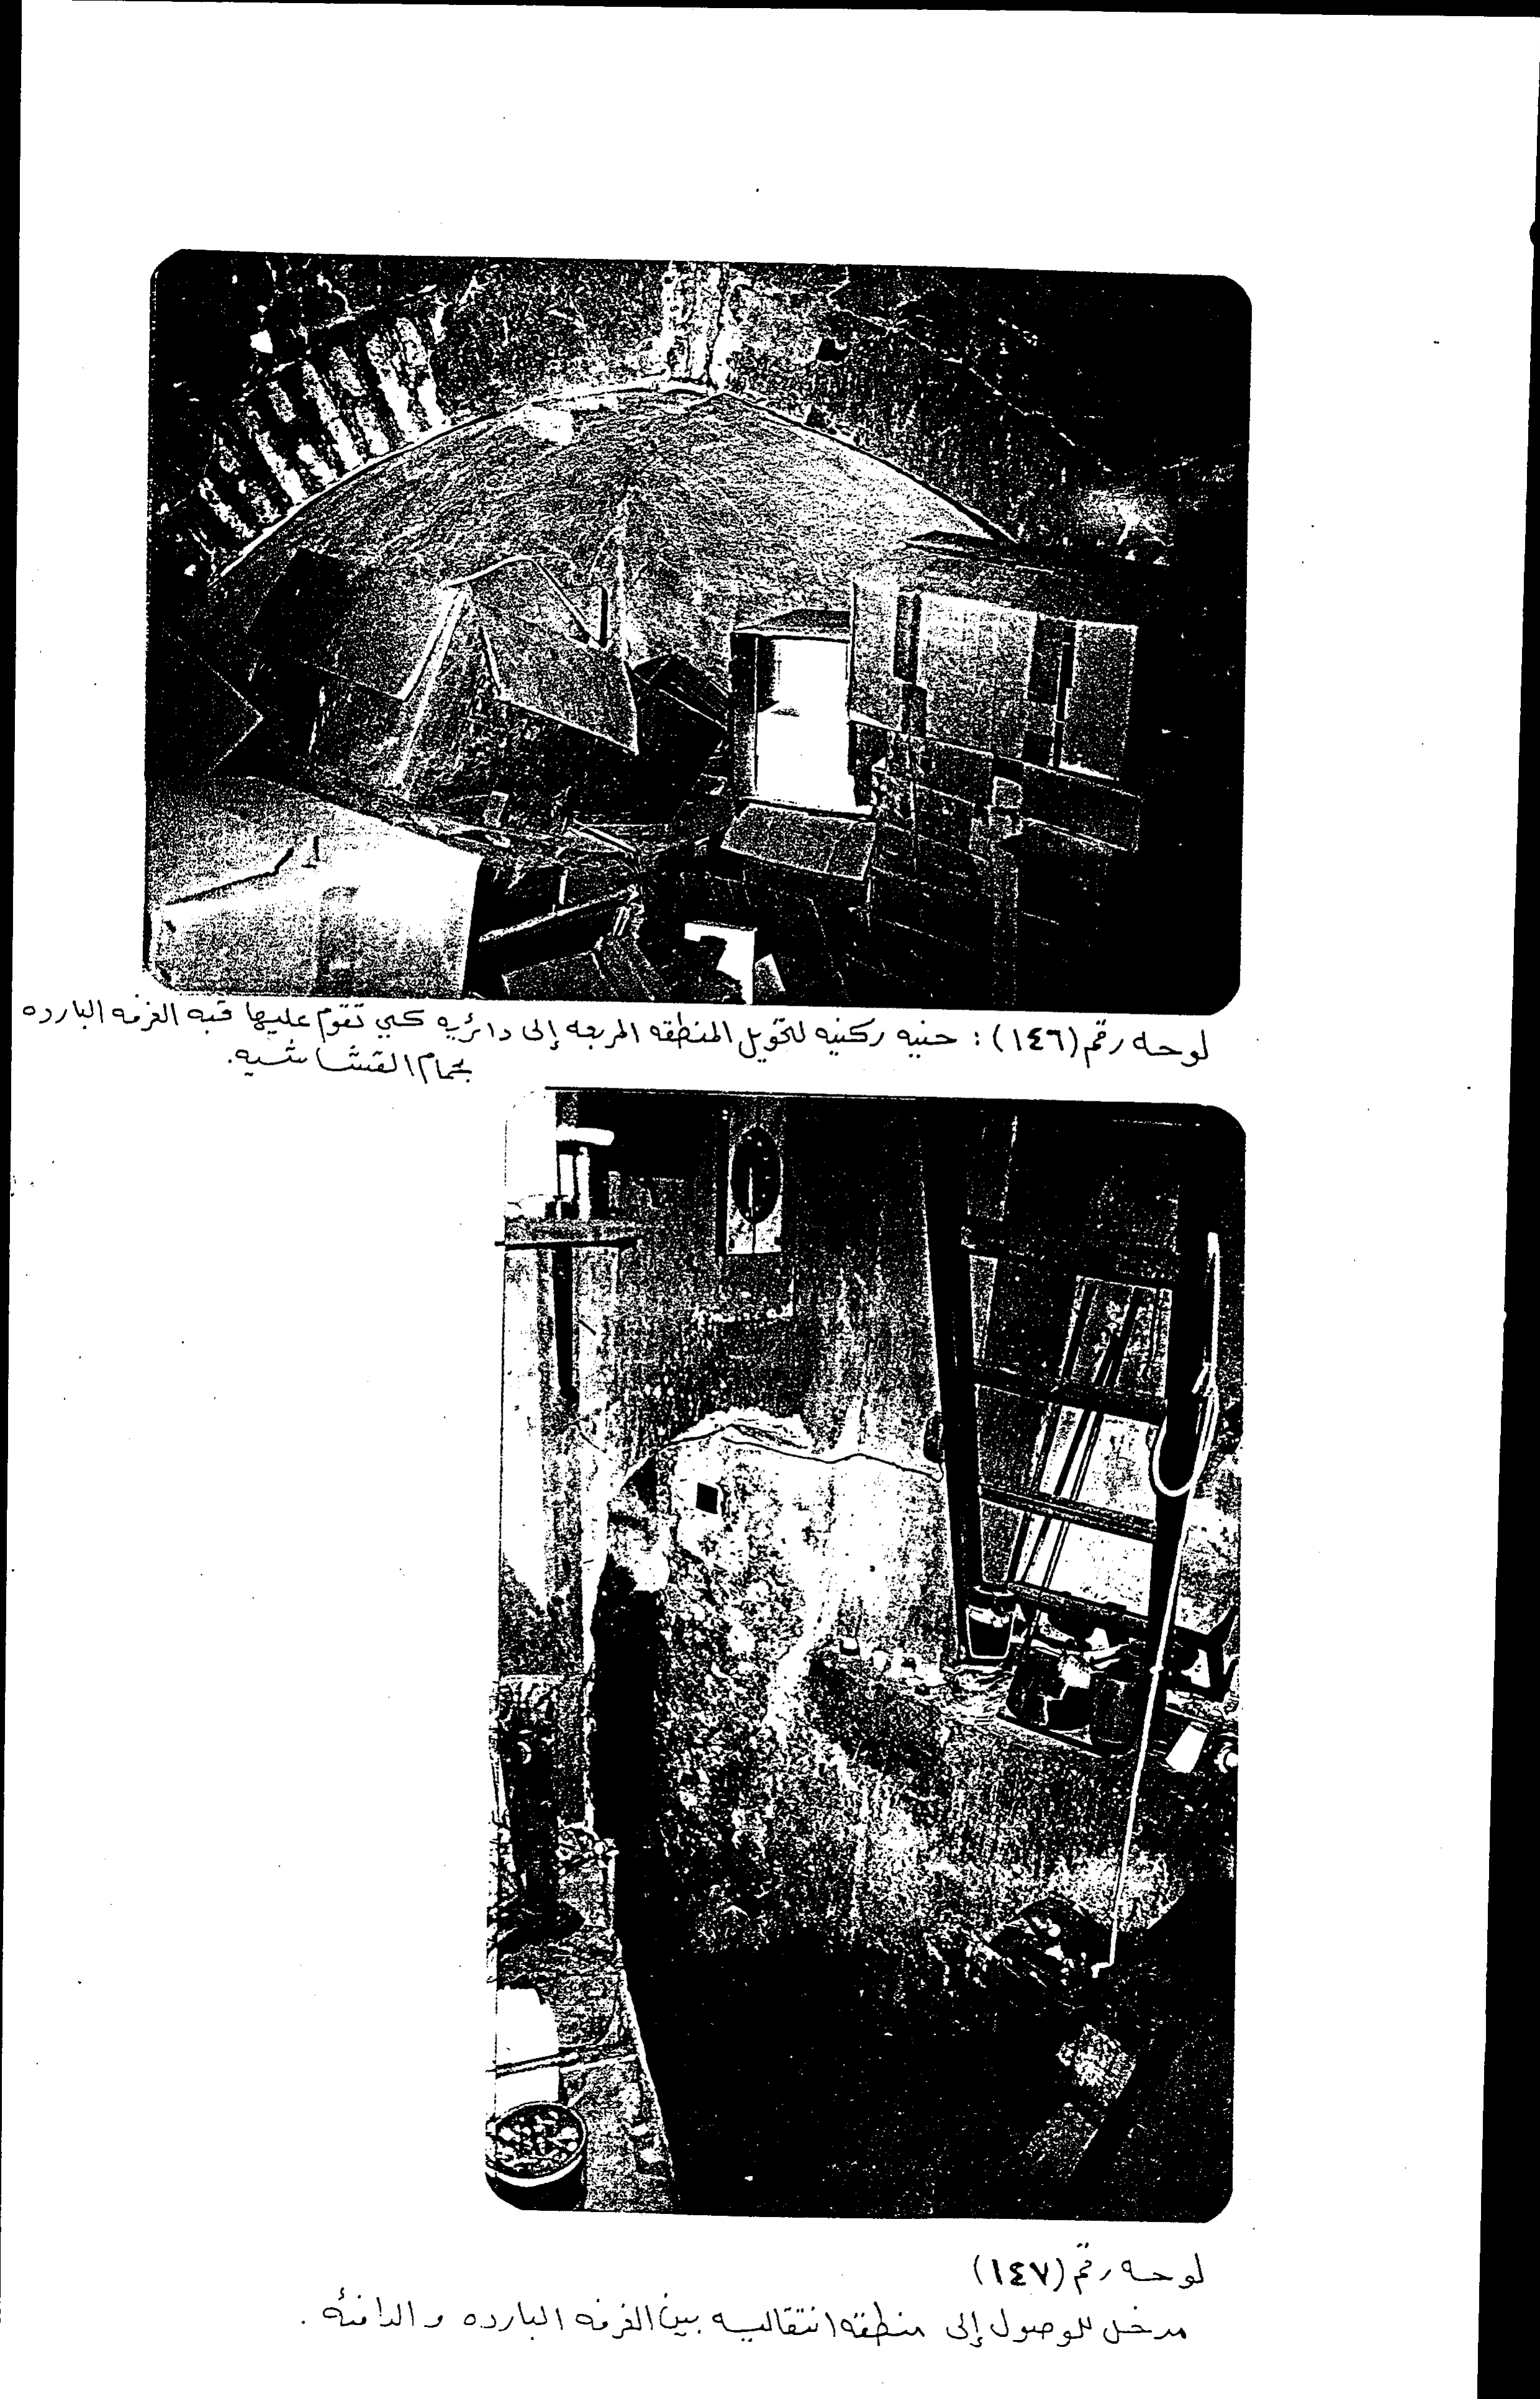 لوحه رقم (١٤٦) : حنيه ركنيه لتحويل المنطقه المربعه إلى دائريه كي تقوم عليها قبه الغرفه البارده
بحمام القشاشيه.
لوحه رقم (١٤٧)
مدخل للوصول إلى منطقه انتقاليه بين الغرفه البارده والدافئه .